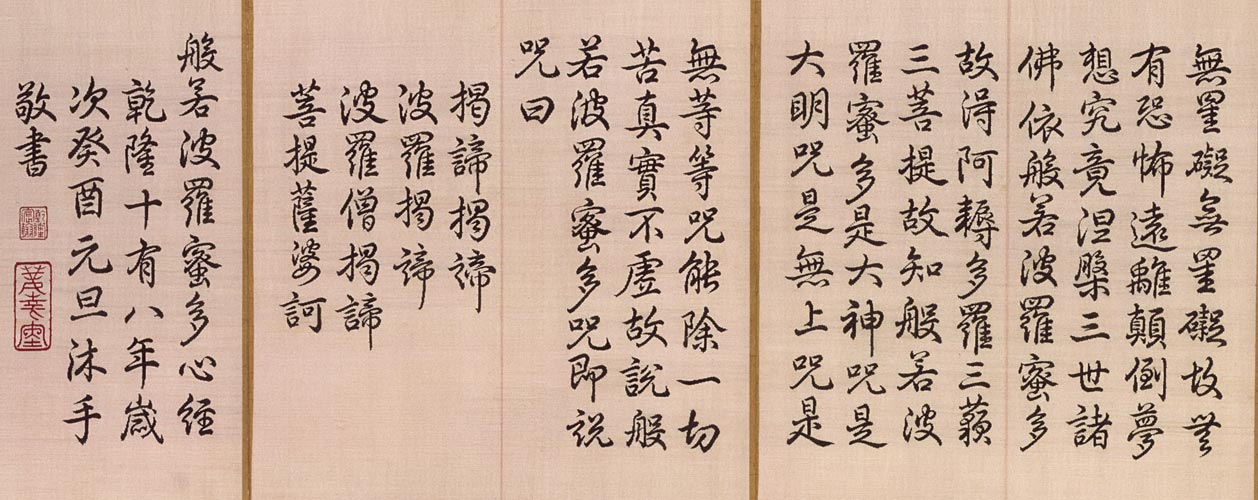 無罣礙無罣礙故無
有恐怖遠離顛倒夢
想究竟涅槃三世諸
佛依般若波羅蜜多
故得阿耨多羅三藐
三菩提故知般若波
羅蜜多是大神咒是
大明咒是無上咒是
無等等咒能除一切
苦真實不虛故說般
若波羅蜜多咒即說
咒曰
揭諦揭諦
波羅揭諦
波羅僧揭諦
菩提薩婆訶
般若波羅蜜多心經
乾隆十有八年歲
次癸酉元旦沐手
敬書
乾隆宸翰